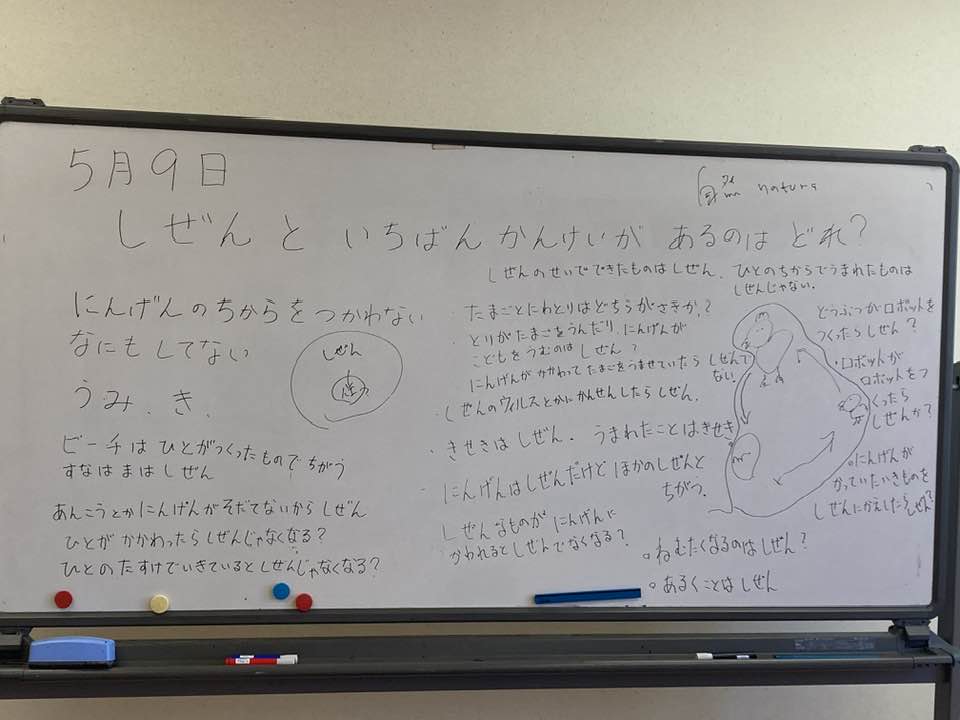 5月9日
自然 nature
しぜん と いちばん かんけいが あるのは どれ?
にんげんの ちからを つかわない
なにも してない
うみ、き、
しぜん
ビーチは ひとがつくったもので ちがう
すなはまは しぜん
あんこうとか にんげんが そだてないから しぜん
ひとが かかわったら しぜんじゃなくなる?
ひとの たすけでいきていると しぜんじゃなくなる?
しぜんのせいでできたものは しぜん、ひとのちからでうまれたものは
しぜんじゃない。
・たまごとにわとりは どちらがさきか?
とりがたまごをうんだり、にんげんが
こどもをうむのは しぜん?
にんげんが かかわって たまごをうませていたら しぜんで
ない。
・しぜんのウィルスとかに かんせんしたら しぜん。
・きせきは しぜん。 うまれたことは きせき
・にんげんは しぜんだけど ほかのしぜんと
ちがう。
しぜんなものが にんげんに
かわれると しぜんでなくなる?
どうぶつがロボットを
つくったら しぜん?
・ロボットが
ロボットをつ
くったら
しぜんか?
○にんげんが
かっていたいきものを
しぜんにかえしたら しぜん?
○ねむたくなるのは しぜん?
○あるくことは しぜん